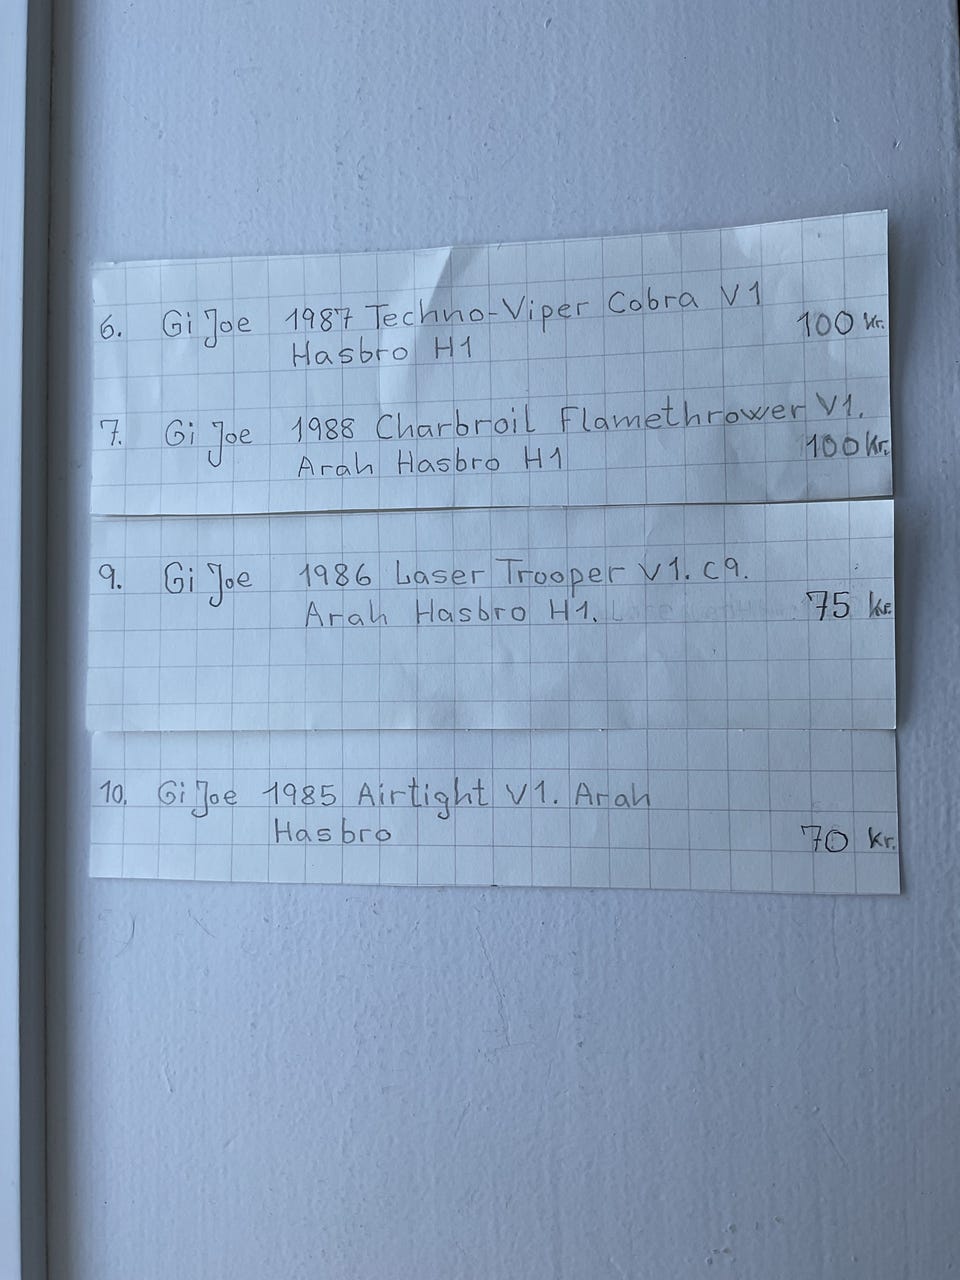 6. Gi Joe 1987 Techno-Viper Cobra V1
Hasbro H1 100 kr.
7. Gi Joe 1988 Charbroil Flamethrower V1.
Arah Hasbro H1 100 kr.
9. Gi Joe 1986 Laser Trooper V1. C9.
Arah Hasbro H1. 75 kr.
10. Gi Joe 1985 Airtight V1. Arah
Hasbro 70 kr.